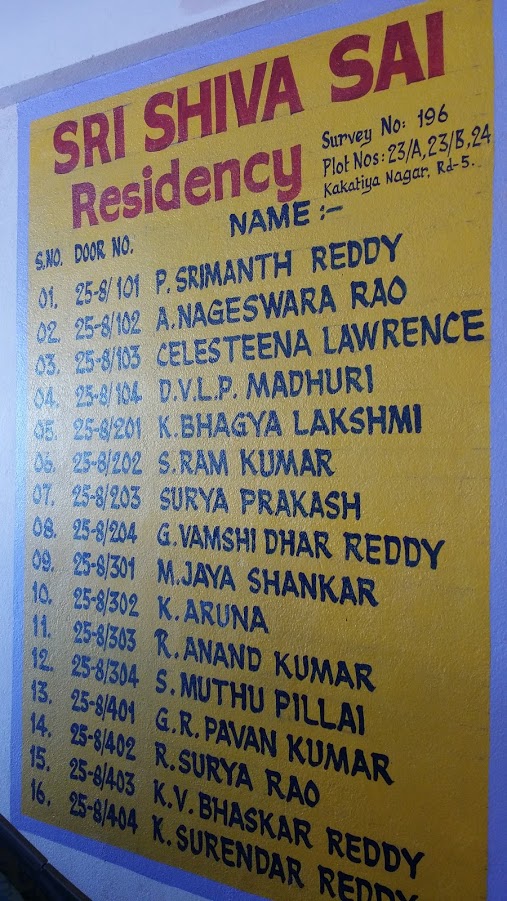 SRI SHIVA SAI
Residency
Survey No: 196
Plot Nos: 23/A, 23/B, 24
Kakatiya Nagar, Rd-5.
S.NO. DOOR NO. NAME :-
01. 25-8/101 P. SRIMANTH REDDY
02. 25-8/102 A. NAGESWARA RAO
03. 25-8/103 CELESTEENA LAWRENCE
04. 25-8/104 D.V.L.P. MADHURI
05. 25-8/201 K. BHAGYA LAKSHMI
06. 25-8/202 S. RAM KUMAR
07. 25-8/203 SURYA PRAKASH
08. 25-8/204 G. VAMSHI DHAR REDDY
09. 25-8/301 M. JAYA SHANKAR
10. 25-8/302 K. ARUNA
11. 25-8/303 R. ANAND KUMAR
12. 25-8/304 S. MUTHU PILLAI
13. 25-8/401 G.R. PAVAN KUMAR
14. 25-8/402 R. SURYA RAO
15. 25-8/403 K.V. BHASKAR REDDY
16. 25-8/404 K. SURENDAR REDDY